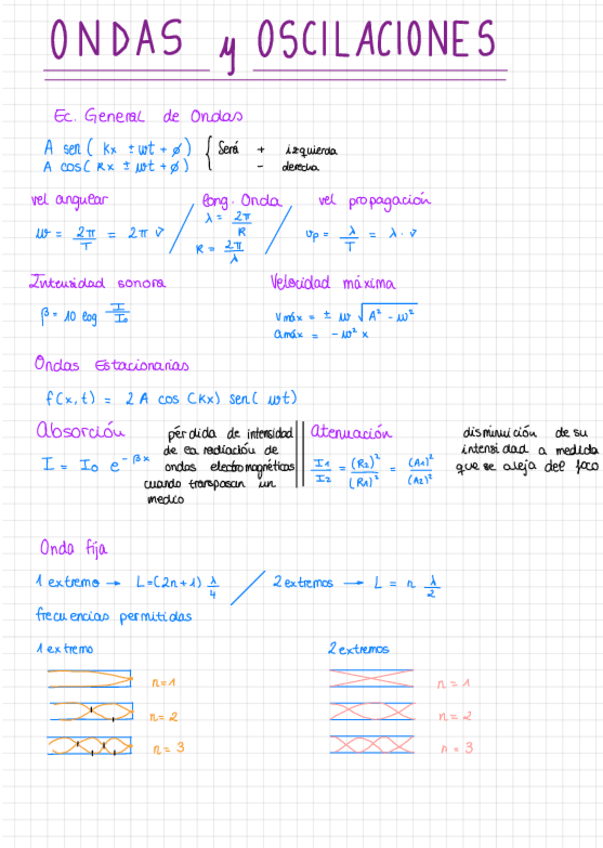 ONDAS y OSCILACIONES
Ec. General de Ondas
A sen ( Kx ± wt + ø) { Será + izquierda
A cos ( Kx ± wt + ø) - derecha
vel angular / long. Onda / vel propagación
w = 2π/T = 2π ν / λ = 2π/K / vp = λ/T = λ · ν
K = 2π/λ
Intensidad sonora
β = 10 log I/I₀
Velocidad máxima
v máx = ± w √(A² - w²)
a máx = - w² x
Ondas Estacionarias
f(x,t) = 2 A cos (Kx) sen( wt)
Absorción
I = I₀ e^-βx
pérdida de intensidad
de la radiación de
ondas electromagnéticas
cuando transpasan un
medio
atenuación
I₁/I₂ = (R₂)²/(R₁)² = (A₁)²/(A₂)²
disminuición de su
intensidad a medida
que se aleja del foco
Onda fija
1 extremo → L=(2n+1) λ/4 / 2 extremos → L = n λ/2
frecuencias permitidas
1 extremo
n=1
n= 2
n= 3
2 extremos
n = 1
n = 2
n = 3